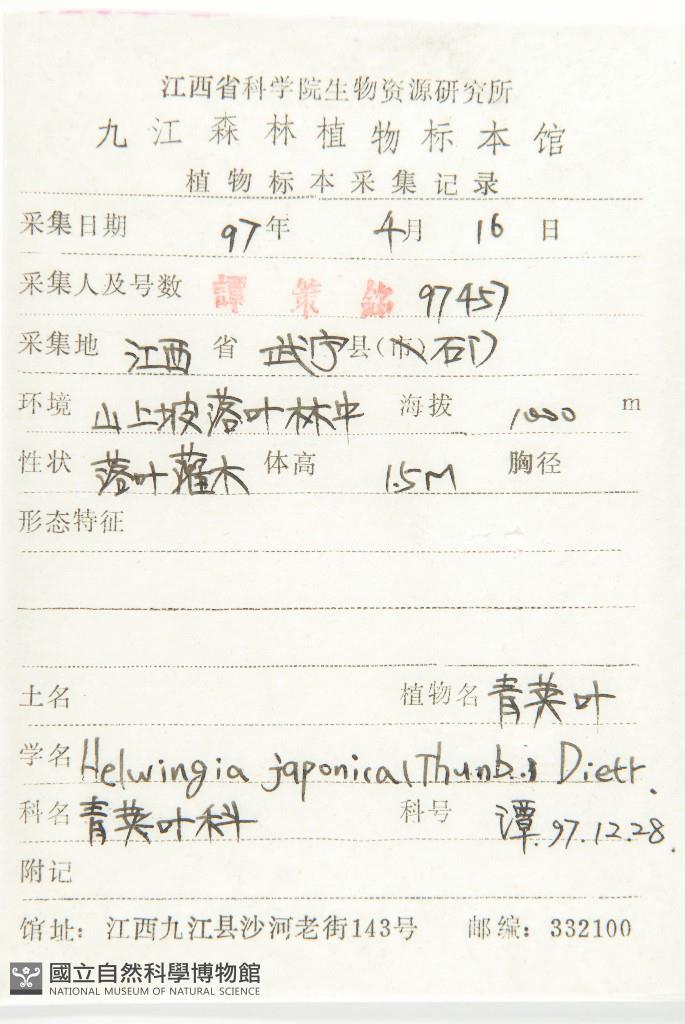 江西省科学院生物资源研究所
九江森林植物标本馆
植物标本采集记录
采集日期 97年 4月 16日
采集人及号数 譚策銘 97457
采集地 江西省 武宁县(市)
环境 山上坡落叶林中 海拔 1000 m
性状 落叶灌木 体高 1.5M 胸径
形态特征
土名 植物名 青荚叶
学名 Helwingia japonica (Thunb.) Dietr.
科名 青荚叶科 科号 潭.97.12.28.
附记
馆址：江西九江县沙河老街143号 邮编：332100
國立自然科學博物館
NATIONAL MUSEUM OF NATURAL SCIENCE